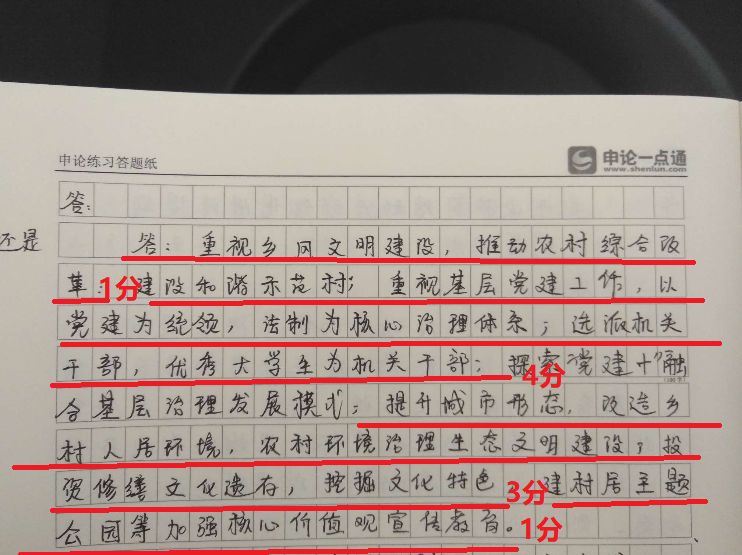 申论练习答题纸
申论一点通
www.shenlun.com
答:
还是
答:重视乡风文明建设,推动农村综合改
革:建设和谐示范村;重视基层党建工作,以
1分
党建为统领,法制为核心治理体系;选派机关
干部,优秀大学生为机关干部;探索"党建十"融
4分
合基层治理发展模式;提升城市形态,改造乡
村人居环境,农村环境治理生态文明建设;投
资修缮文化遗存,挖掘文化特色 建村居主题
3分
公园等加强核心价值观宣传教育。
1分